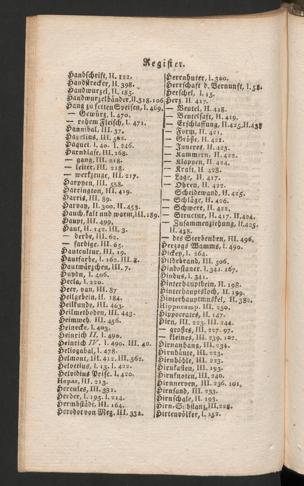 Register.
Handschrift, II. 122.
Handstrecker, II. 398.
Handwurzel, II. 185.
Handwurzelbänder, II. 318. 106.
Hang zu fetten Speisen, I. 469.
— Gewürz, I. 470.
— rohem Fleisch, I. 471.
Hannibal, III. 37.
Harnblase, III. 268.
— gang, III. 218.
— leiter, III. 218.
— werkzeuge, III. 217.
Harpyen, III. 558.
Harrington, III. 419.
Harris, III. 89.
Hauch, kalt und warm, III. 189.
Haupt, III. 499.
Haut, II. 142. III. 3.
— derbe, III. 62.
— farbige, III. 65.
Hautfarbe, I. 162. III. 8.
Hautwärzchen, III. 7.
Haydn, I. 406.
Hecla, I. 220.
Heer, van, III. 87
Heilgebein, II. 184.
Heilkunde, III. 463.
Heilmethoden, III. 443.
Heimweh, III. 456.
Heinecke, I. 403.
Heinrich II. I. 490.
Heinrich IV. I. 490. III. 40.
Heliogabal, I. 478.
Helmont, III. 412, III. 562.
Helvetius, I. 122.
Helvidius Prisc. I. 420.
Hepar, III. 213.
Hercules, III. 331.
Herder, I. 195. I. 214.
Hermbstädt, III. 164.
Herodot von Meg. III. 331.
Herrnhuter, I. 320.
Herrschaft d. Vernunft, I. 58.
Herschel, I. 15.
Herz, II. 417.
— Beutel, II. 418.
— Beutelsaft, II. 419.
— Erschlaffung, II. 425. II. 438
— Form, II. 421.
— Größe, II. 421.
— Inneres, II. 423.
— Kammern, II. 422.
— Klappen, II. 424.
— Kraft, II. 428.
— Lage, II. 417.
— Ohren, II. 422.
— Scheidewand, II. 425.
— Schläge, II. 426.
— Schwere, II. 422.
— Structur, II. 417. II. 424.
— Zusammenziehung, II. 425. II. 438.
— des Sterbenden, III. 496.
Herzogs Wamms, I. 490.
Hickey, I. 264.
Hildebrand, III. 506.
Hindostaner, I. 341. 167.
Hindus, I. 341.
Hinterhauptbein, II. 198.
Hinterhauptmuskel, II. 382.
Hippocrates, III. 147.
Hirn, III. 223. III. 244.
— großes, III. 227. 97.
— kleines, III. 239. 107.
Hirnanhang, III. 234.
Hirnhäute, III. 223.
Hirnhöhle, III. 223.
Hirnkasten, III. 193.
Hirnknoten, III. 240.
Hirnnerven, III. 236. 101.
Hirnsand, III. 233.
Hirnschale, II. 193.
Hirn-Substanz, III. 228.
Hirtenvölker, I. 152.